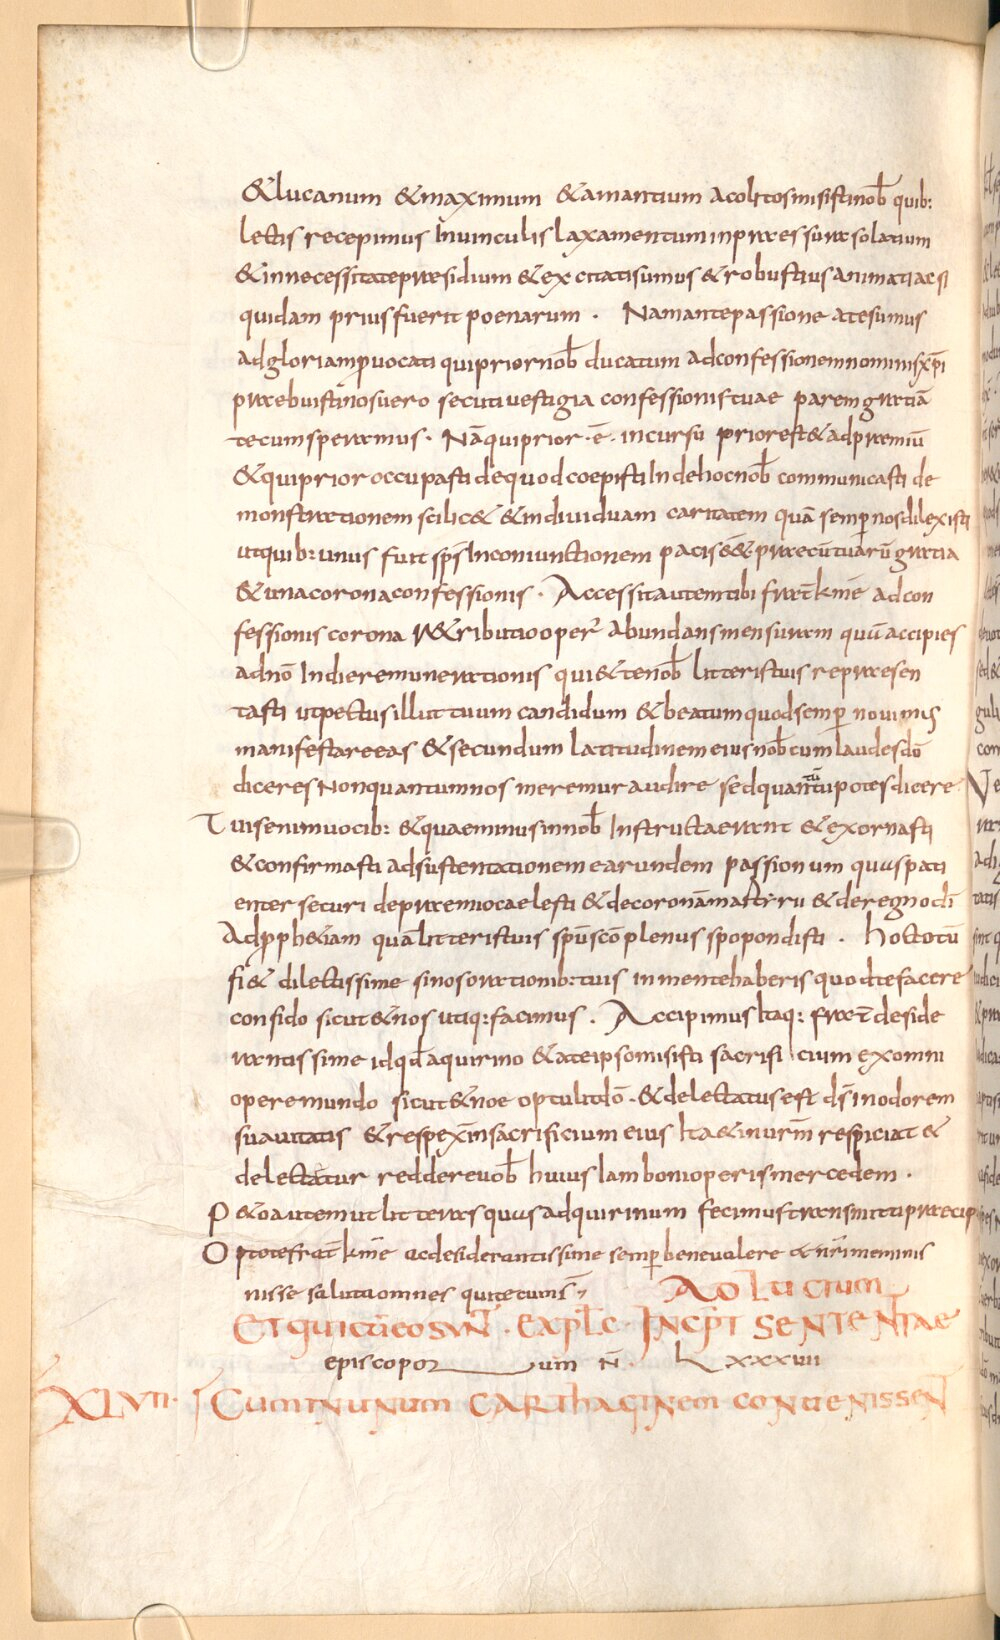 & lucanum & maximum & amantium acolitos misisti nob̄ quib:
lectis recepimus In uinculis laxamentum in pressura solatium
& in necessitate praesidium & excitati sumus & robustius animati ac si
quidam prius fuerit poenarum · Nam ante passione a te sumus
ad gloriam ꝓuocati qui prior nob̄ ducatum ad confessionem nominis xp̄i
praebuisti nos uero secuti uestigia confessionis tuae parem gratiā
tecum speramus · Nā qui prior · ē · in cursu prior est & ad praemiū
& qui prior occupasti de quod coepisti Inde hoc nob̄ communicasti de
monstrationem scilic& & indiuiduam caritatem quā semp̄ nos dilexisti
ut quib: unus fuit sp̄s In coniunctionem pacis
& una corona confessionis · Accessit autem tibi frat̄ k̄me ad con
fessionis corona r&ributio oper abundans mensuram quā accipies
ad nō In die remunerationis qui & te nob̄ litteris tuis repraesen
tasti ut pectus illut tuum candidum & beatum quod semp̄ nouimus
manifestare eas & secundum latitudinem eius nob̄cum laudes dō
diceres Non quantum nos meremur audire sed quantū tu potes dicere
Tuis enim uocib: & quae minus in nob̄ Instructa erant & exornasti
& confirmasti ad sustentationem earundem passionum quas pati
enter securi de praemio caelesti & de coronā martyrii & de regno dī
Ad proph&iam quā litteris tuis spū scō plenus spopondisti · hoc totū
fi& dilectissime si nos orationib: tuis in mente haberis quod te facere
confido sicut & nos utiq: facimus · Accipimus Itaq: frat̄ deside
rantissime id qd̄ a quirino & a te ipso misisti sacrificium ex omni
opere mundo sicut & noe optulit dō · & delectatus est d̄s in odorem
suauitatis & respexit in sacrificium eius Ita & in urm̄ respiciat &
delectatur reddere uob̄ huius tam boni operis mercedem ·
P&o autem ut litteras quas ad quirinum fecimus transmitti praecip
Opto te frat̄ k̄me ac desiderantissime semp̄ bene ualere & nr̄i memi
nisse saluta omnes qui tecum s̄
Ad lucium
Et qui cū eo sunt̄ · expl̄c · Incp̄t sententiae
episcoporum n̄ · Lxxxuii
XLVII · Cum in unum carthaginem conuenissent̄